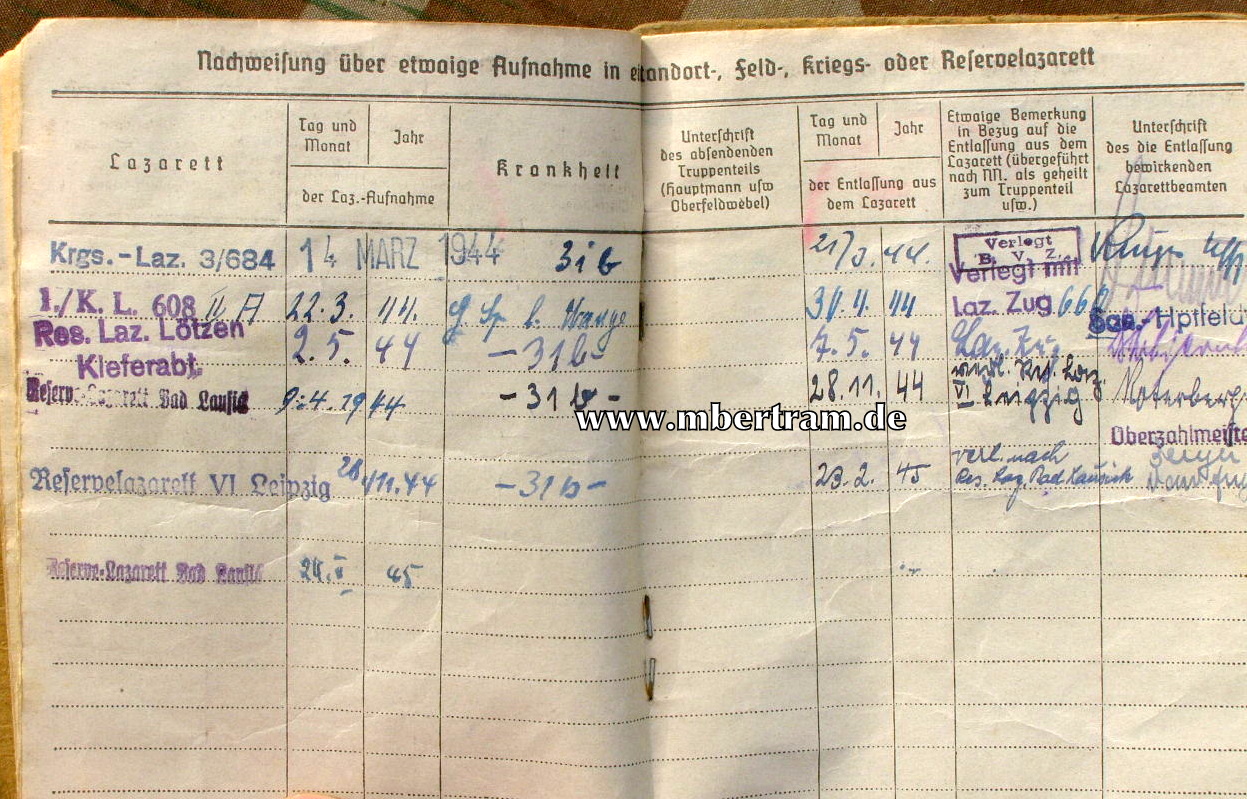 Nachweisung über etwaige Aufnahme in e tandort-, Feld-, Kriegs- oder Reservelazarett
Lazarett
Tag und Monat
Jahr
der Laz.-Aufnahme
Krankheit
Unterschrift
des absendenden
Truppenteils
(Hauptmann usw
Oberfeldwebel)
Tag und Monat
Jahr
der Entlassung aus
dem Lazarett
Etwaige Bemerkung
in Bezug auf die
Entlassung aus dem
Lazarett (übergeführt
nach NN. als geheilt
zum Truppenteil
usw.)
Unterschrift
des die Entlassung
bewirkenden
Lazarettbeamten
Krgs.-Laz. 3/684 14 MARZ 1944 31b 21/3. 44. Verlegt
B. V. Z.
Verlegt mit
I./K. L. 608 22.3. 44. 30.4. 44 Laz. Zug 66
San.-Hptfeld
Res. Laz. Lötzen 2.5. 44 -31b- 7.5. 44
Kieferabt.
Reserve-Lazarett Bad Lausick 9.4. 1944 -31b- 28.11. 44 verl. Res. Laz.
VI Leipzig
www.mbertram.de
Oberzahlmeiste
Reservelazarett VI Leipzig 28/11.44 -31b- 23.2. 45 verl. nach
Res. Laz. Bad Lausick
Reserve-Lazarett Bad Lausick 24. 45